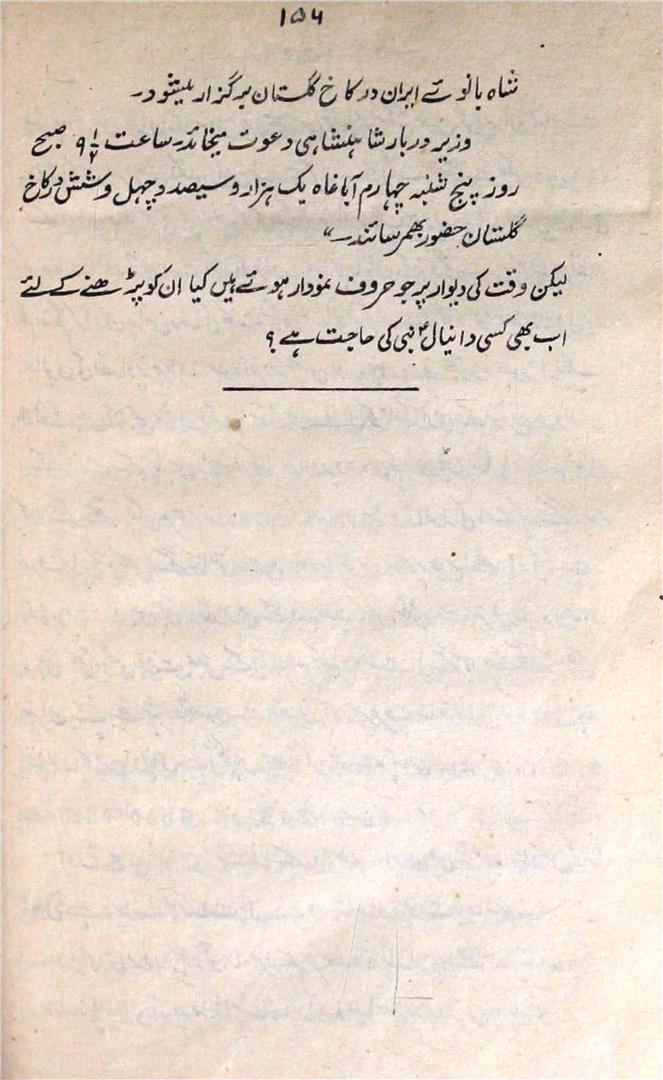 ۱۵۶
شاہ بانوئے ایران در کاخ گلستان برگزار میشود۔
وزیر دربار شاہنشاہی دعوت میخاند۔ ساعت ۹½ صبح
روز پنج شنبہ چہارم آباغاہ یک ہزار و سیصد و چہل و شش در کاخ
گلستان حضور بھمرسانند۔”
لیکن وقت کی دیوار پر جو حروف نمودار ہوئے ہیں کیا ان کو پڑھنے کے لئے
اب بھی کسی دانیالؑ نبی کی حاجت ہے؟